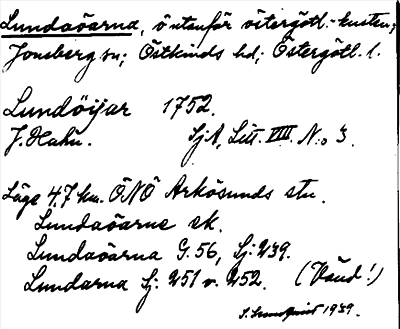 Lundaöarna, ö utanför östergötl.-kusten;
Jonsberg sn; Östkinds hd; Östergötl. l.
Lundöijar 1752.
J. Hahn. SjA, Litt. VIII. N:o 3.
Läge 4,7 km. ÖNÖ Arkösunds stn.
Lundaöarne ek.
Lundaöarna G. 56, Sj: 239.
Lundarna Sj: 251 o. 252. (Vänd!)
S. Lundqvist 1939.